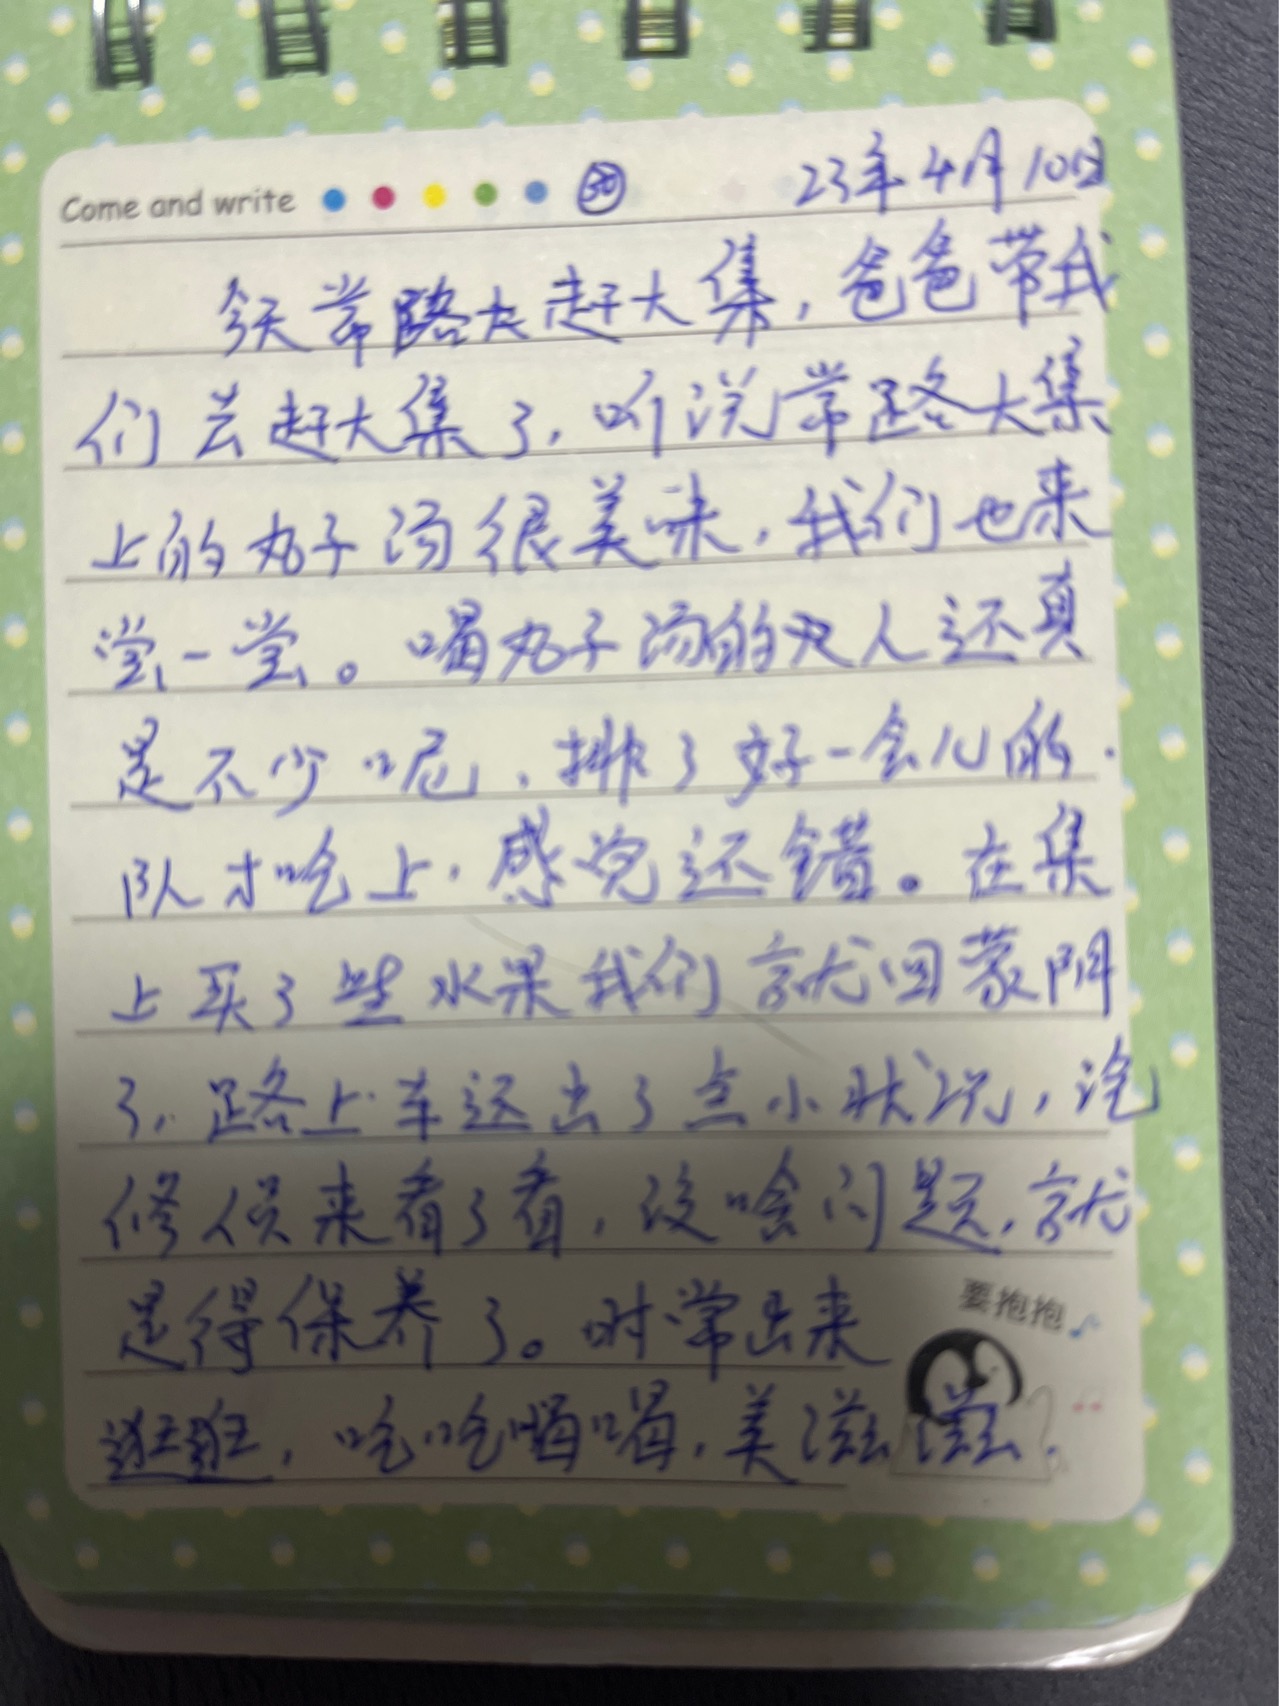 Come and write 30 23年4月10日
今天常路大赶大集，爸爸带我
们去赶大集了，听说常路大集
上的丸子汤很美味，我们也来
尝一尝。喝丸子汤的人还真
是不少呢，排了好一会儿的
队才吃上，感觉还错。在集
上买了些水果我们就回蒙阴
了，路上车还出了点小状况，汽
修人员来看了看，没啥问题，就
是得保养了。时常出来
要抱抱
逛逛，吃吃喝喝，美滋滋。